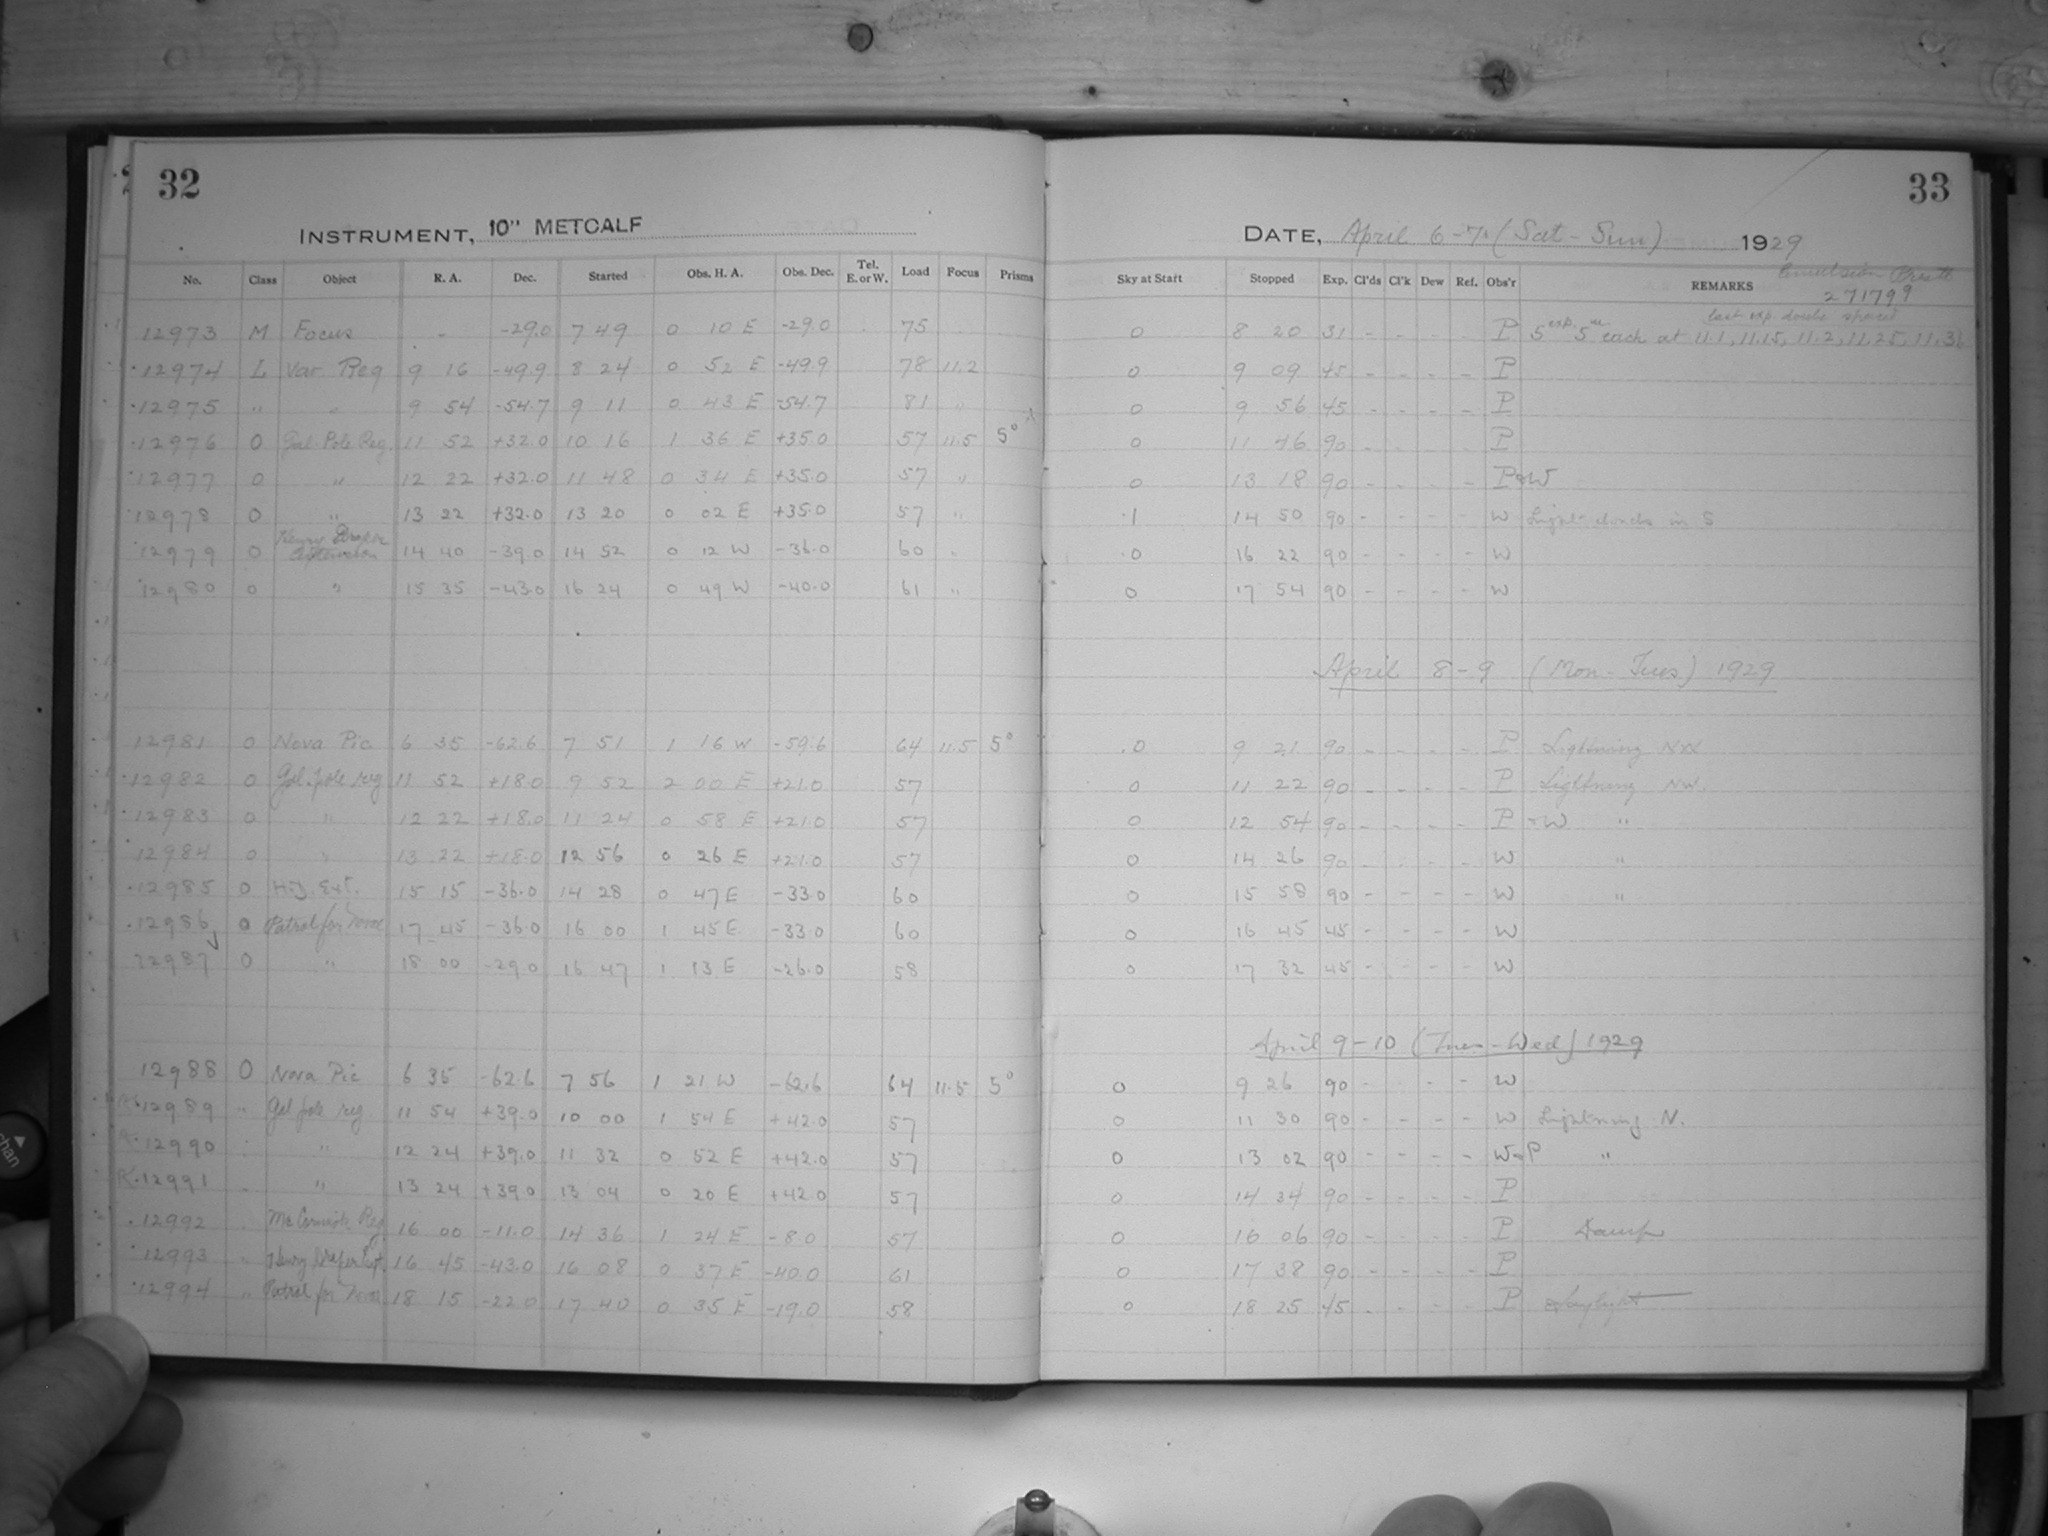 32
INSTRUMENT, 10" METCALF
No. Class Object R. A. Dec. Started Obs. H. A. Obs. Dec. Tel. E. or W. Load Focus Prisms
12973 M Focus - -29.0 7 49 0 10 E -29.0 75
12974 L Var Reg 9 16 -49.9 8 24 0 52 E -49.9 78 11.2
12975 " " 9 54 -54.7 9 11 0 43 E -54.7 81 "
12976 O Gal. Pole Reg. 11 52 +32.0 10 16 1 36 E +35.0 57 11.5 5°
12977 O " 12 22 +32.0 11 48 0 34 E +35.0 57 "
12978 O " 13 22 +32.0 13 20 0 02 E +35.0 57 "
12979 O Henry Draper Extension 14 40 -39.0 14 52 0 12 W -36.0 60 "
12980 O " 15 35 -43.0 16 24 0 49 W -40.0 61 "
12981 O Nova Pic 6 35 -62.6 7 51 1 16 W -59.6 64 11.5 5°
12982 O Gal. pole reg 11 52 +18.0 9 52 2 00 E +21.0 57
12983 O " 12 22 +18.0 11 24 0 58 E +21.0 57
12984 O " 13 22 +18.0 12 56 0 26 E +21.0 57
12985 O H.D. Ext. 15 15 -36.0 14 28 0 47 E -33.0 60
12986 O Patrol for Novae 17 45 -36.0 16 00 1 45 E -33.0 60
12987 O " 18 00 -29.0 16 47 1 13 E -26.0 58
12988 O Nova Pic 6 35 -62.6 7 56 1 21 W -62.6 64 11.5 5°
12989 " Gal pole reg. 11 54 +39.0 10 00 1 54 E +42.0 57
12990 " 12 24 +39.0 11 32 0 52 E +42.0 57
12991 " 13 24 +39.0 13 04 0 20 E +42.0 57
12992 McCormick Reg 16 00 -11.0 14 36 1 24 E -8.0 57
12993 " Henry Draper Ext. 16 45 -43.0 16 08 0 37 E -40.0 61
12994 " Patrol for Novae 18 15 -22.0 17 40 0 35 E -19.0 58
33
DATE, April 6-7. (Sat - Sun) 1929
Sky at Start Stopped Exp. Cl'ds Cl'k Dew Ref. Obs'r REMARKS
Emulsion
27179
last exp. double spaced
0 8 20 31 - - - - P 5 exp. 5m each at 11.1, 11.15, 11.2, 11.25, 11.3
0 9 09 45 - - - - P
0 9 56 45 - - - - P
0 11 46 90 - - - - P
0 13 18 90 - - - - P+W
.1 14 50 90 - - - - W Light clouds in S
.0 16 22 90 - - - - W
0 17 54 90 - - - - W
April 8-9 (Mon - Tues) 1929
.0 9 21 90 - - - - P Lightning NW
0 11 22 90 - - - - P Lightning NW.
0 12 54 90 - - - - P+W "
0 14 26 90 - - - - W "
0 15 58 90 - - - - W "
0 16 45 45 - - - - W
0 17 32 45 - - - - W
April 9-10 (Tues - Wed) 1929
0 9 26 90 - - - - W
0 11 30 90 - - - - W Lightning N.
0 13 02 90 - - - - W+P "
0 14 34 90 - - - - P
0 16 06 90 - - - - P Damp
0 17 38 90 - - - - P
0 18 25 45 - - - - P Daylight